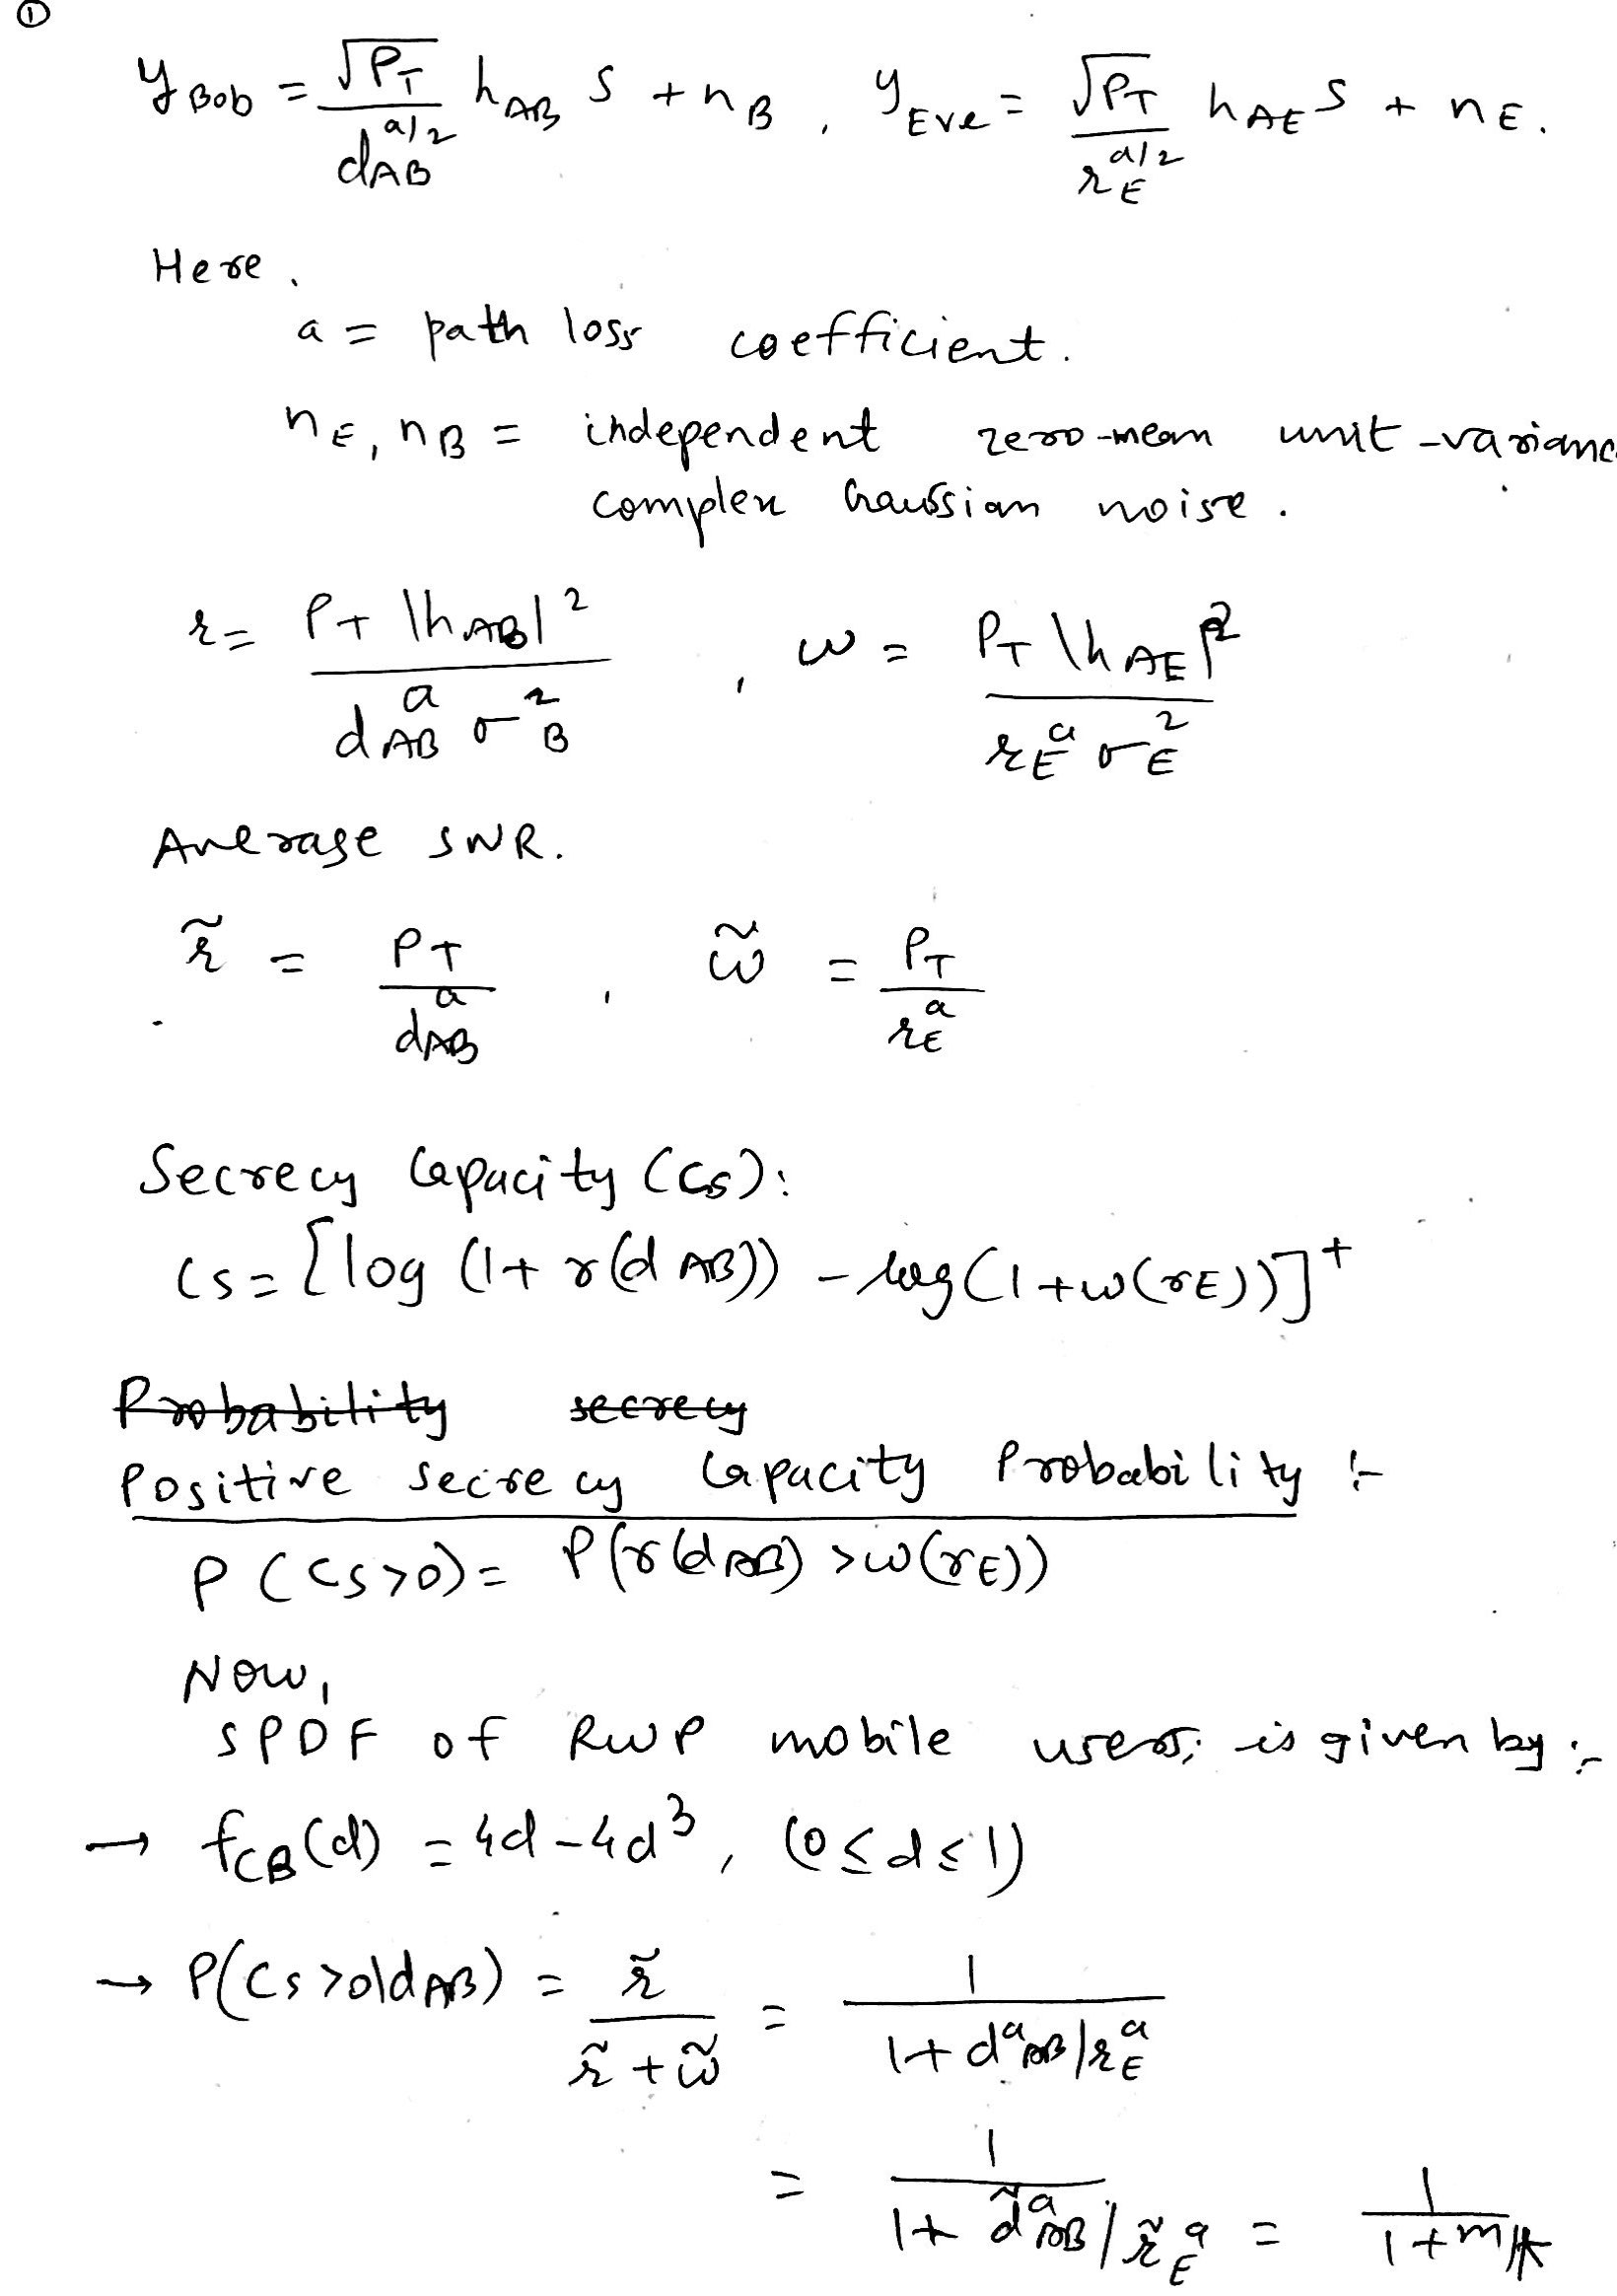 ①
y_Bob = √P_T / d_AB^{a/2} h_AB s + n_B , y_Eve = √P_T / r_E^{a/2} h_AE s + n_E .
Here ,
a = path loss coefficient .
n_E, n_B = independent zero-mean unit-varianc
complex Gaussian noise .
r = P_T |h_AB|^2 / d_AB^a σ_B^2 , ω = P_T |h_AE|^2 / r_E^a σ_E^2
Average SNR.
r̃ = P_T / d_AB^a , ω̃ = P_T / r_E^a
Secrecy Capacity (Cs):
Cs = [log (1 + r(d_AB)) - log (1 + ω(r_E))]^+
Probability secrecy
Positive secrecy Capacity Probability :-
P (Cs>0) = P(r(d_AB) > ω(r_E))
Now,
SPDF of RWP mobile users; is given by :-
→ f_CB(d) = 4d - 4d^3 , (0 ≤ d ≤ 1)
→ P(Cs>0|d_AB) = r̃ / r̃ + ω̃ = 1 / 1 + d^a_AB / r_E^a
= 1 / 1 + d̃^a_AB / r̃_E^a = 1 / 1 + m/k